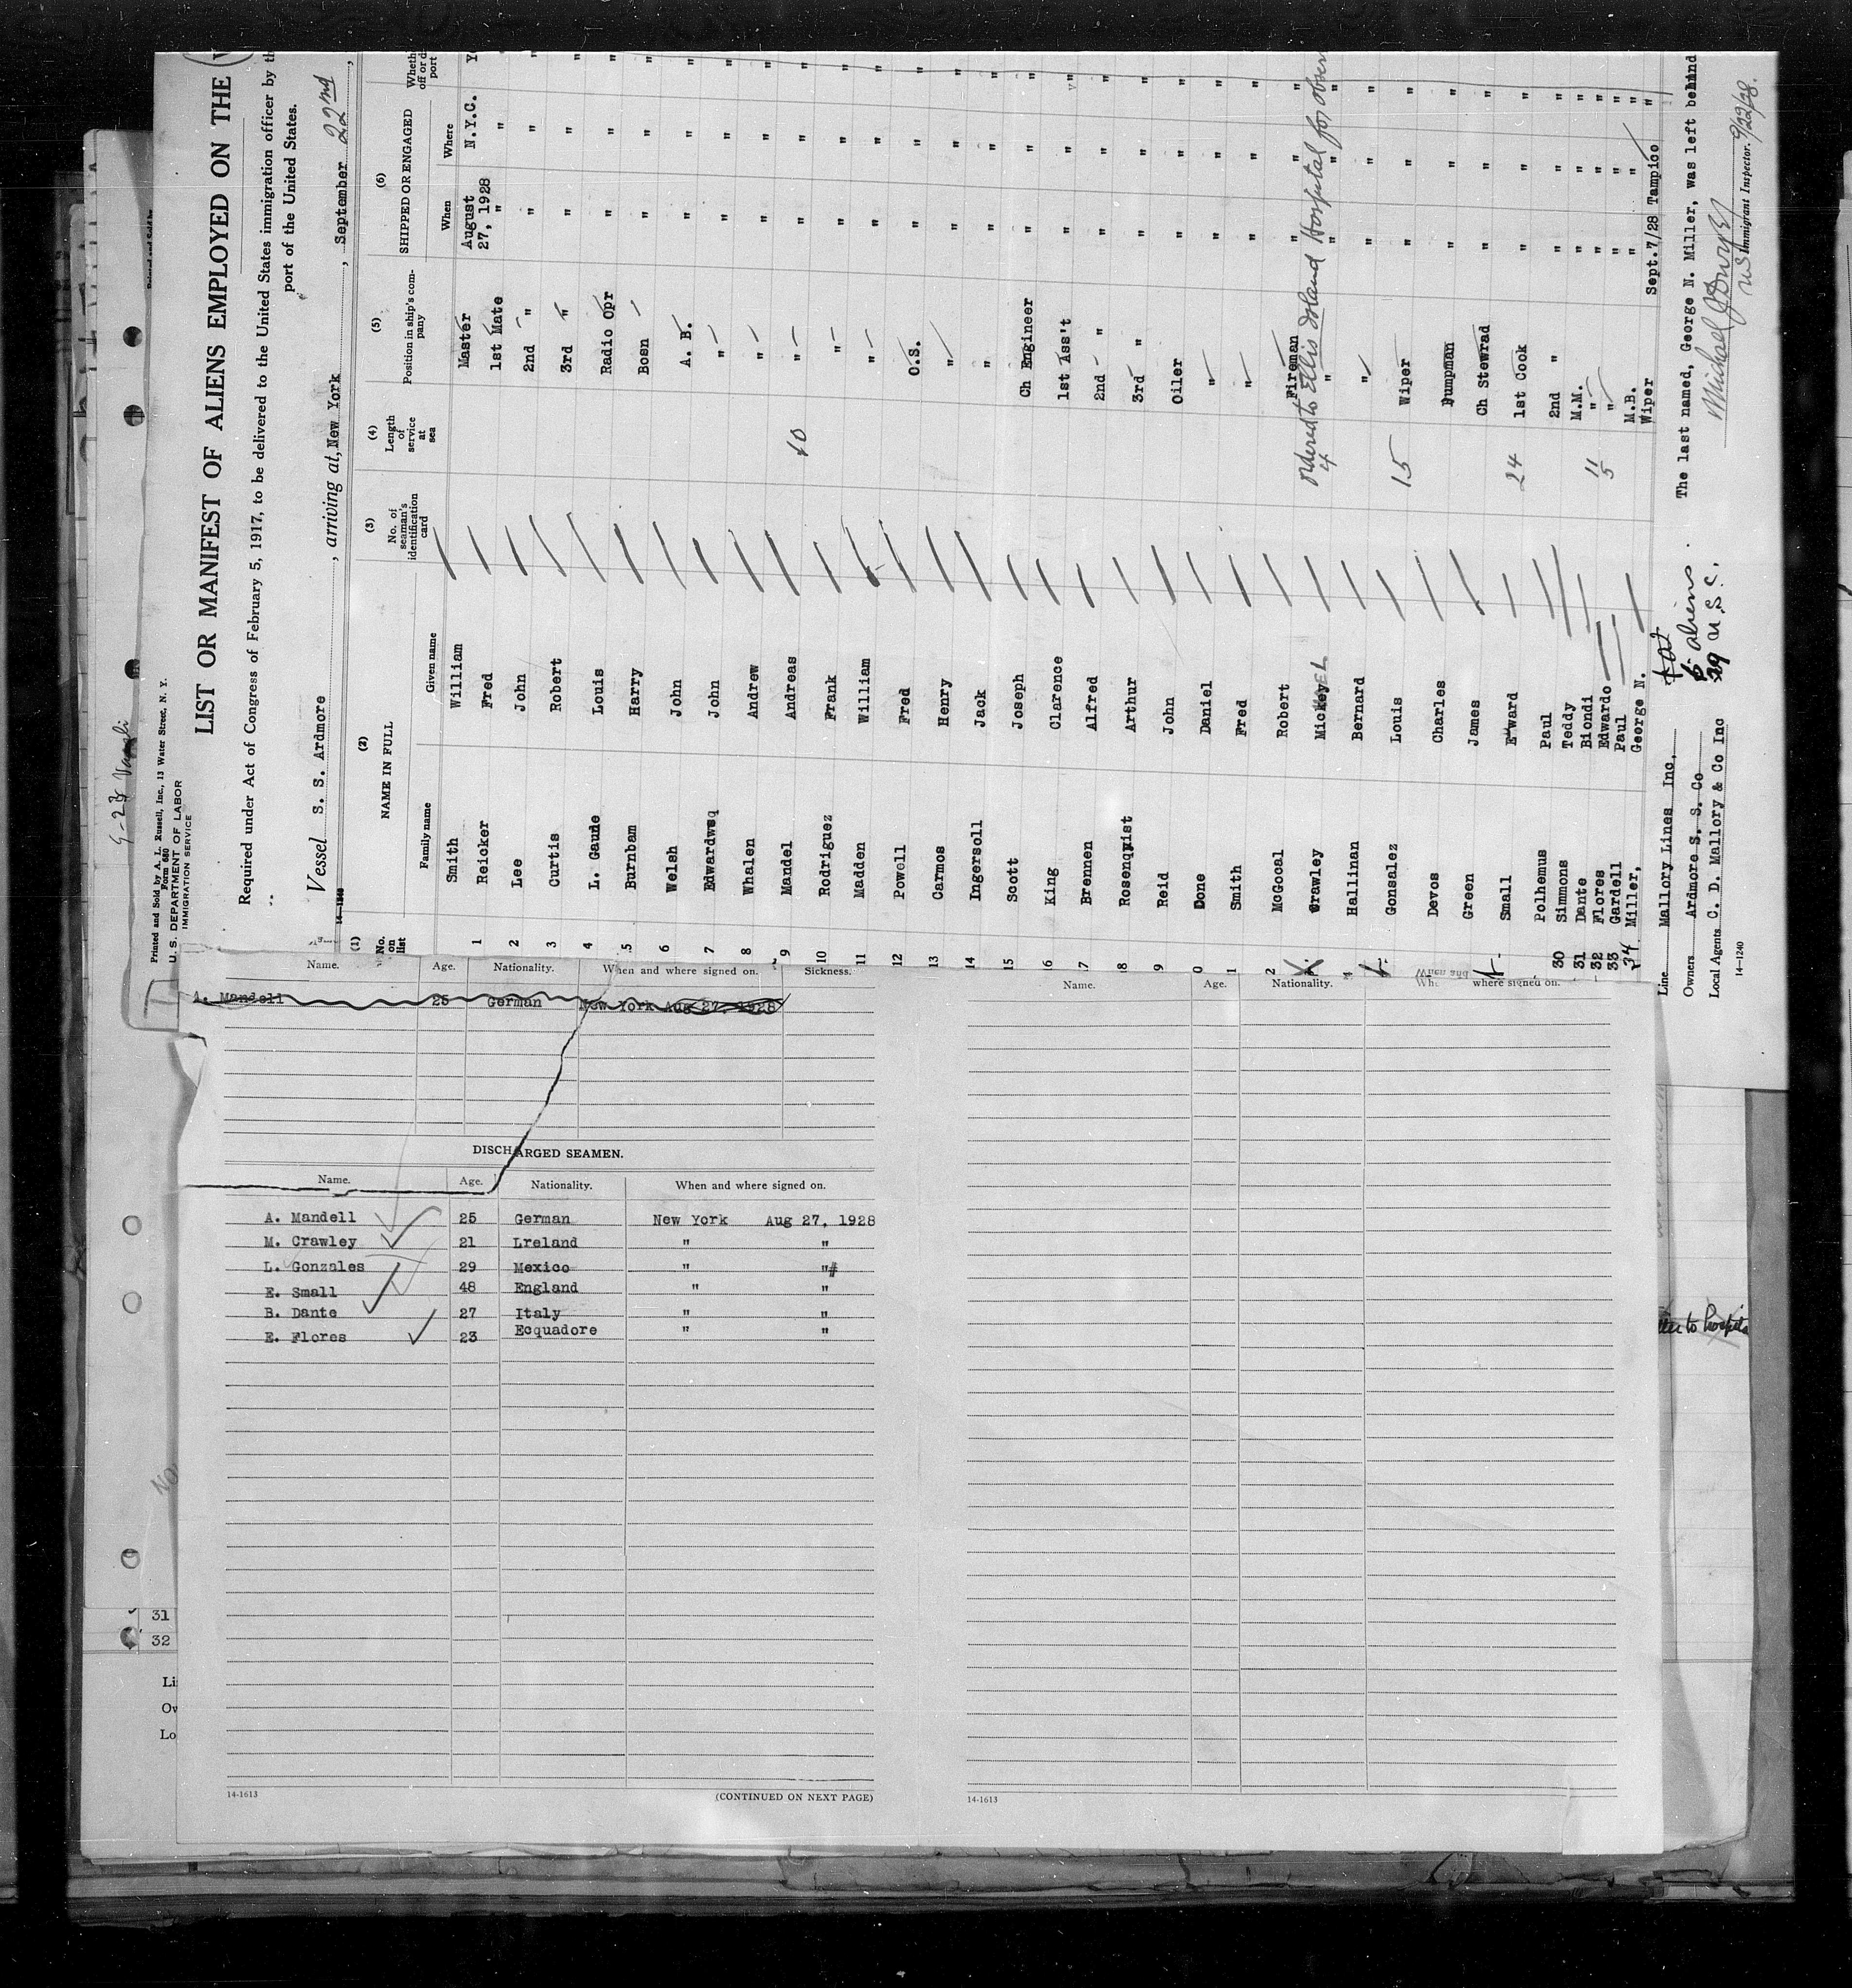 9-28
Printed and Sold by A. L. Russell, Inc., 13 Water Street, N. Y.
Form 680
U. S. DEPARTMENT OF LABOR
IMMIGRATION SERVICE
LIST OR MANIFEST OF ALIENS EMPLOYED ON THE
Required under Act of Congress of February 5, 1917, to be delivered to the United States immigration officer by th
port of the United States.
Vessel S. S. Ardmore, arriving at, New York, September 22nd,
14-1240
(1) (2) (3) (4) (5) (6)
No. on list NAME IN FULL No. of seaman's identification card Length of service at sea Position in ship's company SHIPPED OR ENGAGED
Family name Given name When Where
1 Smith William Master August 27, 1928 N.Y.C.
2 Reicker Fred 1st Mate " "
3 Lee John 2nd " " "
4 Curtis Robert 3rd " " "
5 L. Gaude Louis Radio Opr " "
6 Burnbam Harry Bosn " "
7 Welsh John A. B. " "
8 Edwardwsq John " " "
9 Whalen Andrew " " "
10 Mandel Andreas 10 " " "
11 Rodriguez Frank " " "
12 Madden William " " "
13 Powell Fred O.S. " "
14 Carmos Henry " " "
15 Ingersoll Jack " " "
16 Scott Joseph Ch Engineer " "
17 King Clarence 1st Ass't " "
18 Brennen Alfred 2nd " " "
19 Rosenquist Arthur 3rd " " "
Reid John Oiler " "
Done Daniel " " "
Smith Fred " " "
McGocal Robert Fireman " "
Crawley Mickey 4 " " "
ordered to Ellis Island Hospital for obser
Hallinan Bernard " " "
Gosalez Louis 15 Wiper " "
Devos Charles Pumpman " "
Green James Ch Stewrad " "
Small Edward 24 1st Cook " "
Polhemus Paul 2nd " " "
30 Simmons Teddy M.M. " "
31 Dante Biondi 11 " " "
32 Flores Edwardo 5 " " "
33 Gardell Paul M.B. " "
34 Miller, George N. Wiper Sept.7/28 Tampico
Line Mallory Lines Inc, The last named, George N. Miller, was left behind
Owners Ardmore S. S. Co aliens
Local Agents C. D. Mallory & Co Inc 29 U.S.C. Immigrant Inspector. 9/22/28.
14-1240
Name. Age. Nationality. When and where signed on. Sickness.
A. Mandell 25 German New York Aug 27, 1928
DISCHARGED SEAMEN.
Name. Age. Nationality. When and where signed on.
A. Mandell 25 German New York Aug 27, 1928
M. Crawley 21 Lreland " "
L. Gonzales 29 Mexico " "#
E. Small 48 England " "
B. Dante 27 Italy " "
E. Flores 23 Ecquadore " "
14-1613 (CONTINUED ON NEXT PAGE)
Name. Age. Nationality. When and where signed on.
14-1613
31
32
Li
Ow
Lo